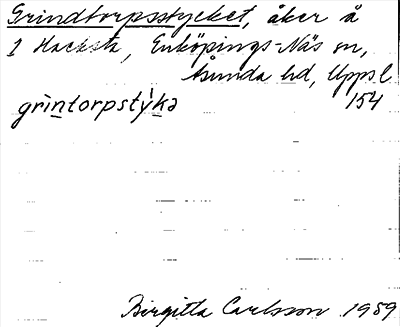 Grindtorpsstycket, åker å
1 Hacksta, Enköpings-Näs sn,
Åsunda hd, Uppsl
grintorpstyka 154
Birgitta Carlsson 1959